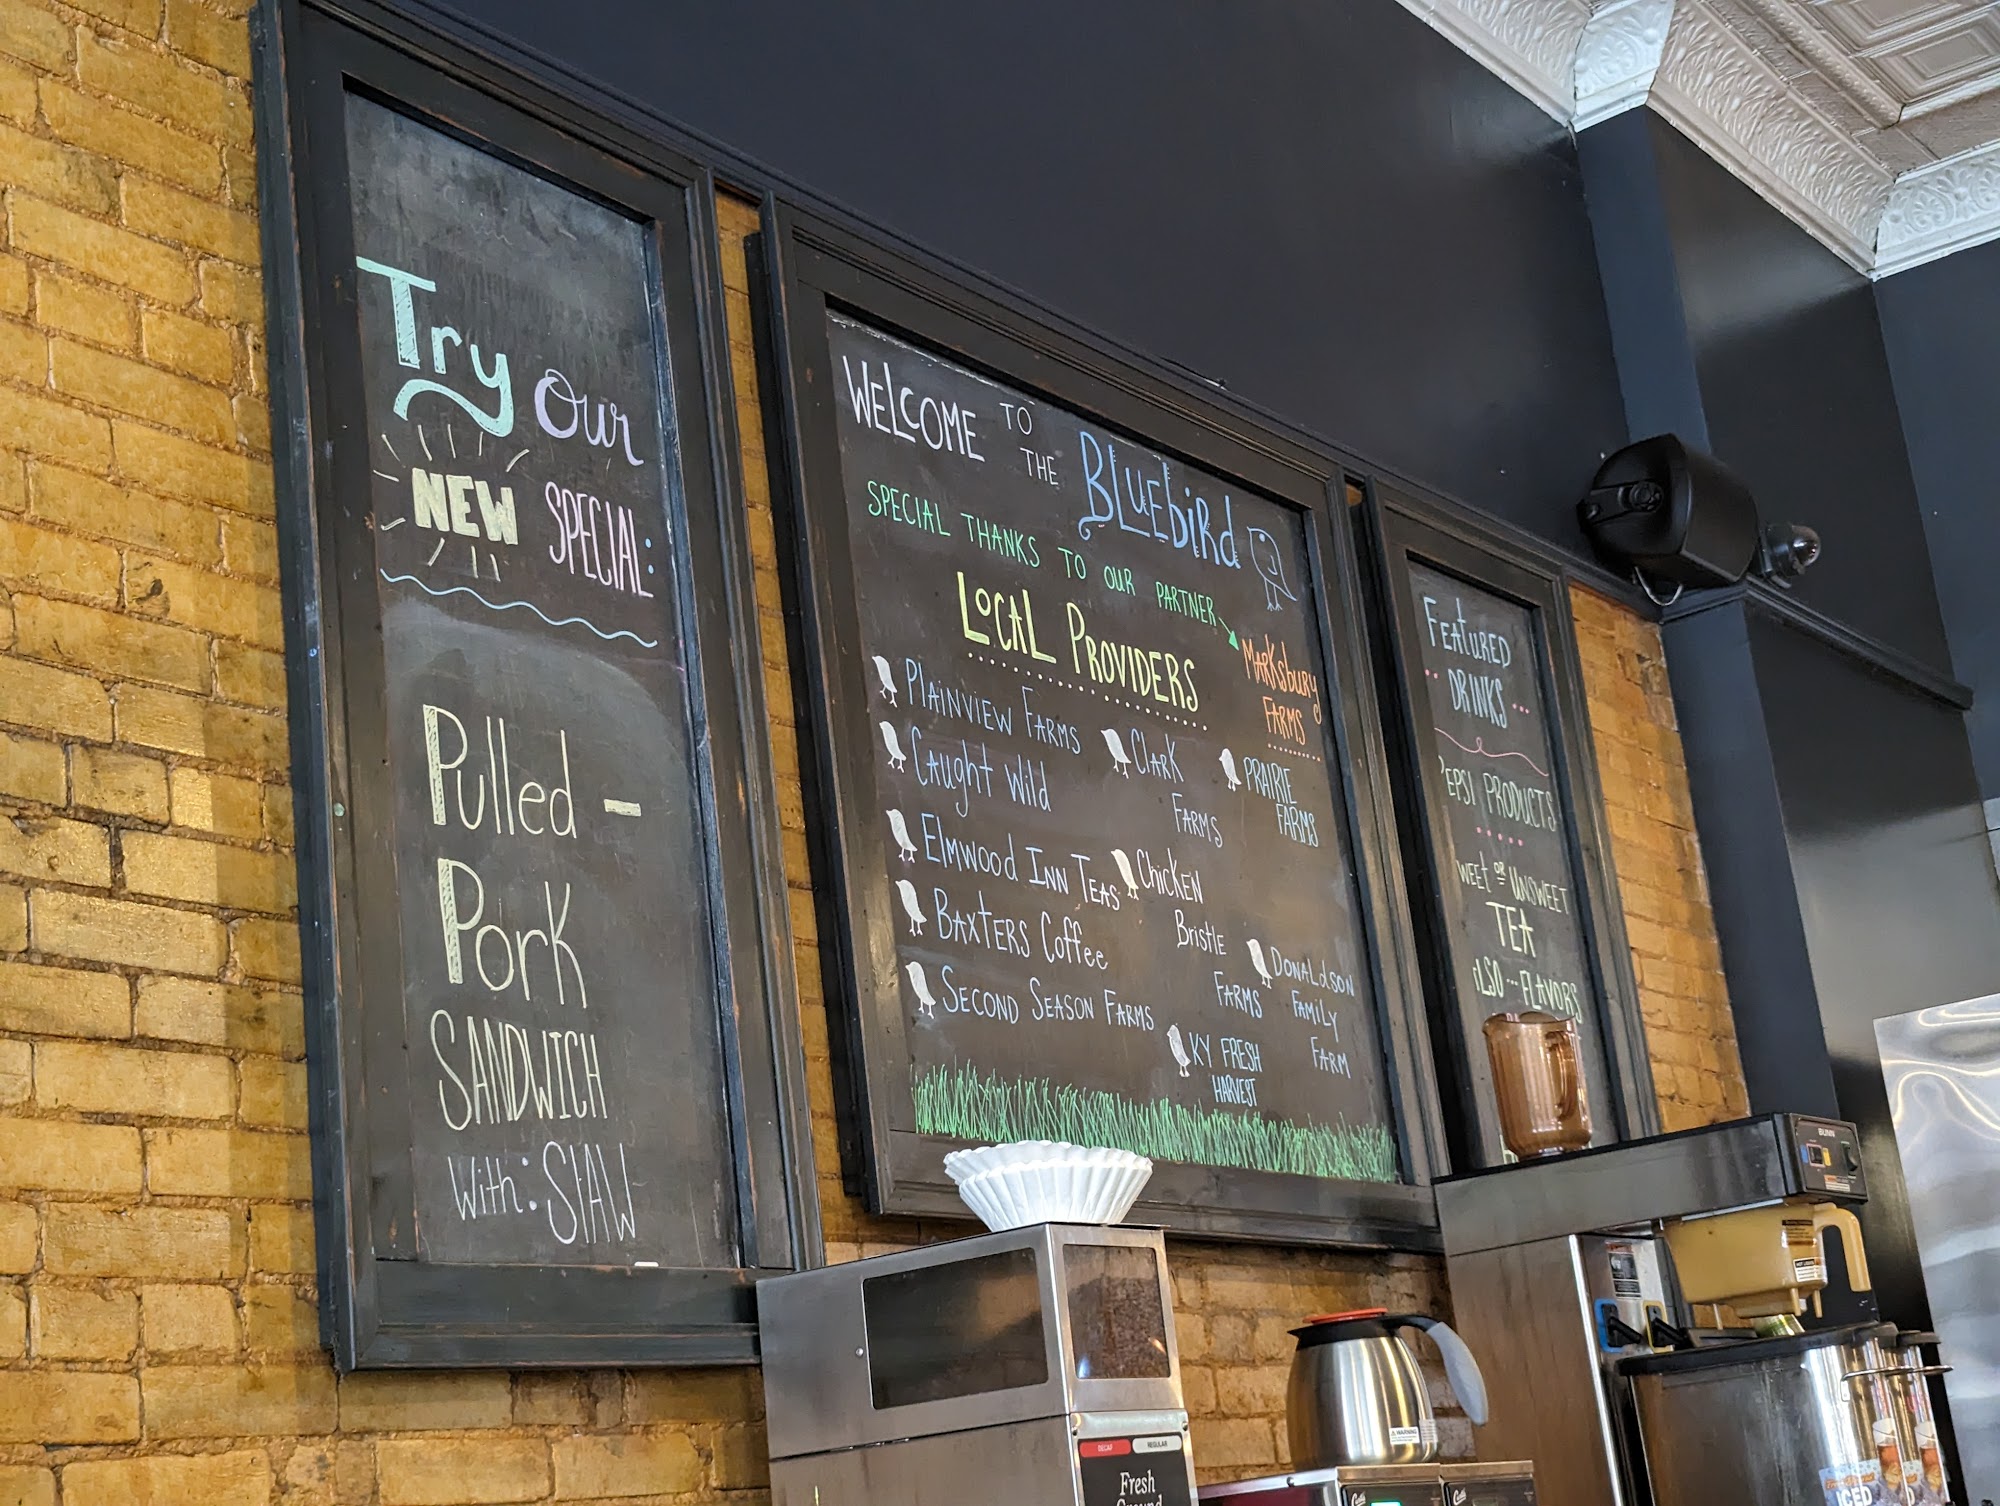 Try Our
NEW SPECIAL:
Pulled -
Pork
SANDWICH
With: SLAW
WELCOME TO
THE
BLUEbiRd
SPECIAL THANKS TO OUR PARTNER
MARKSbURY
FARMS
LOCAL PROVIDERS
PLAINVIEW FARMS
Caught Wild
Elmwood Inn Teas
BAXTERS Coffee
SECOND SEASON FARMS
CLARK
FARMS
CHICKEN
BRISTLE
FARMS
KY FRESH
HARVEST
PRAIRIE
FARMS
DONALdSON
FAMILY
FARM
FEATURED
DRINKS ...
EPSI PRODUCTS
WEET OR UNSWEET
TEA
ALSO ... FLAVORS
BUNN
DECAF REGULAR
Fresh
Ground
WARNING
ICED